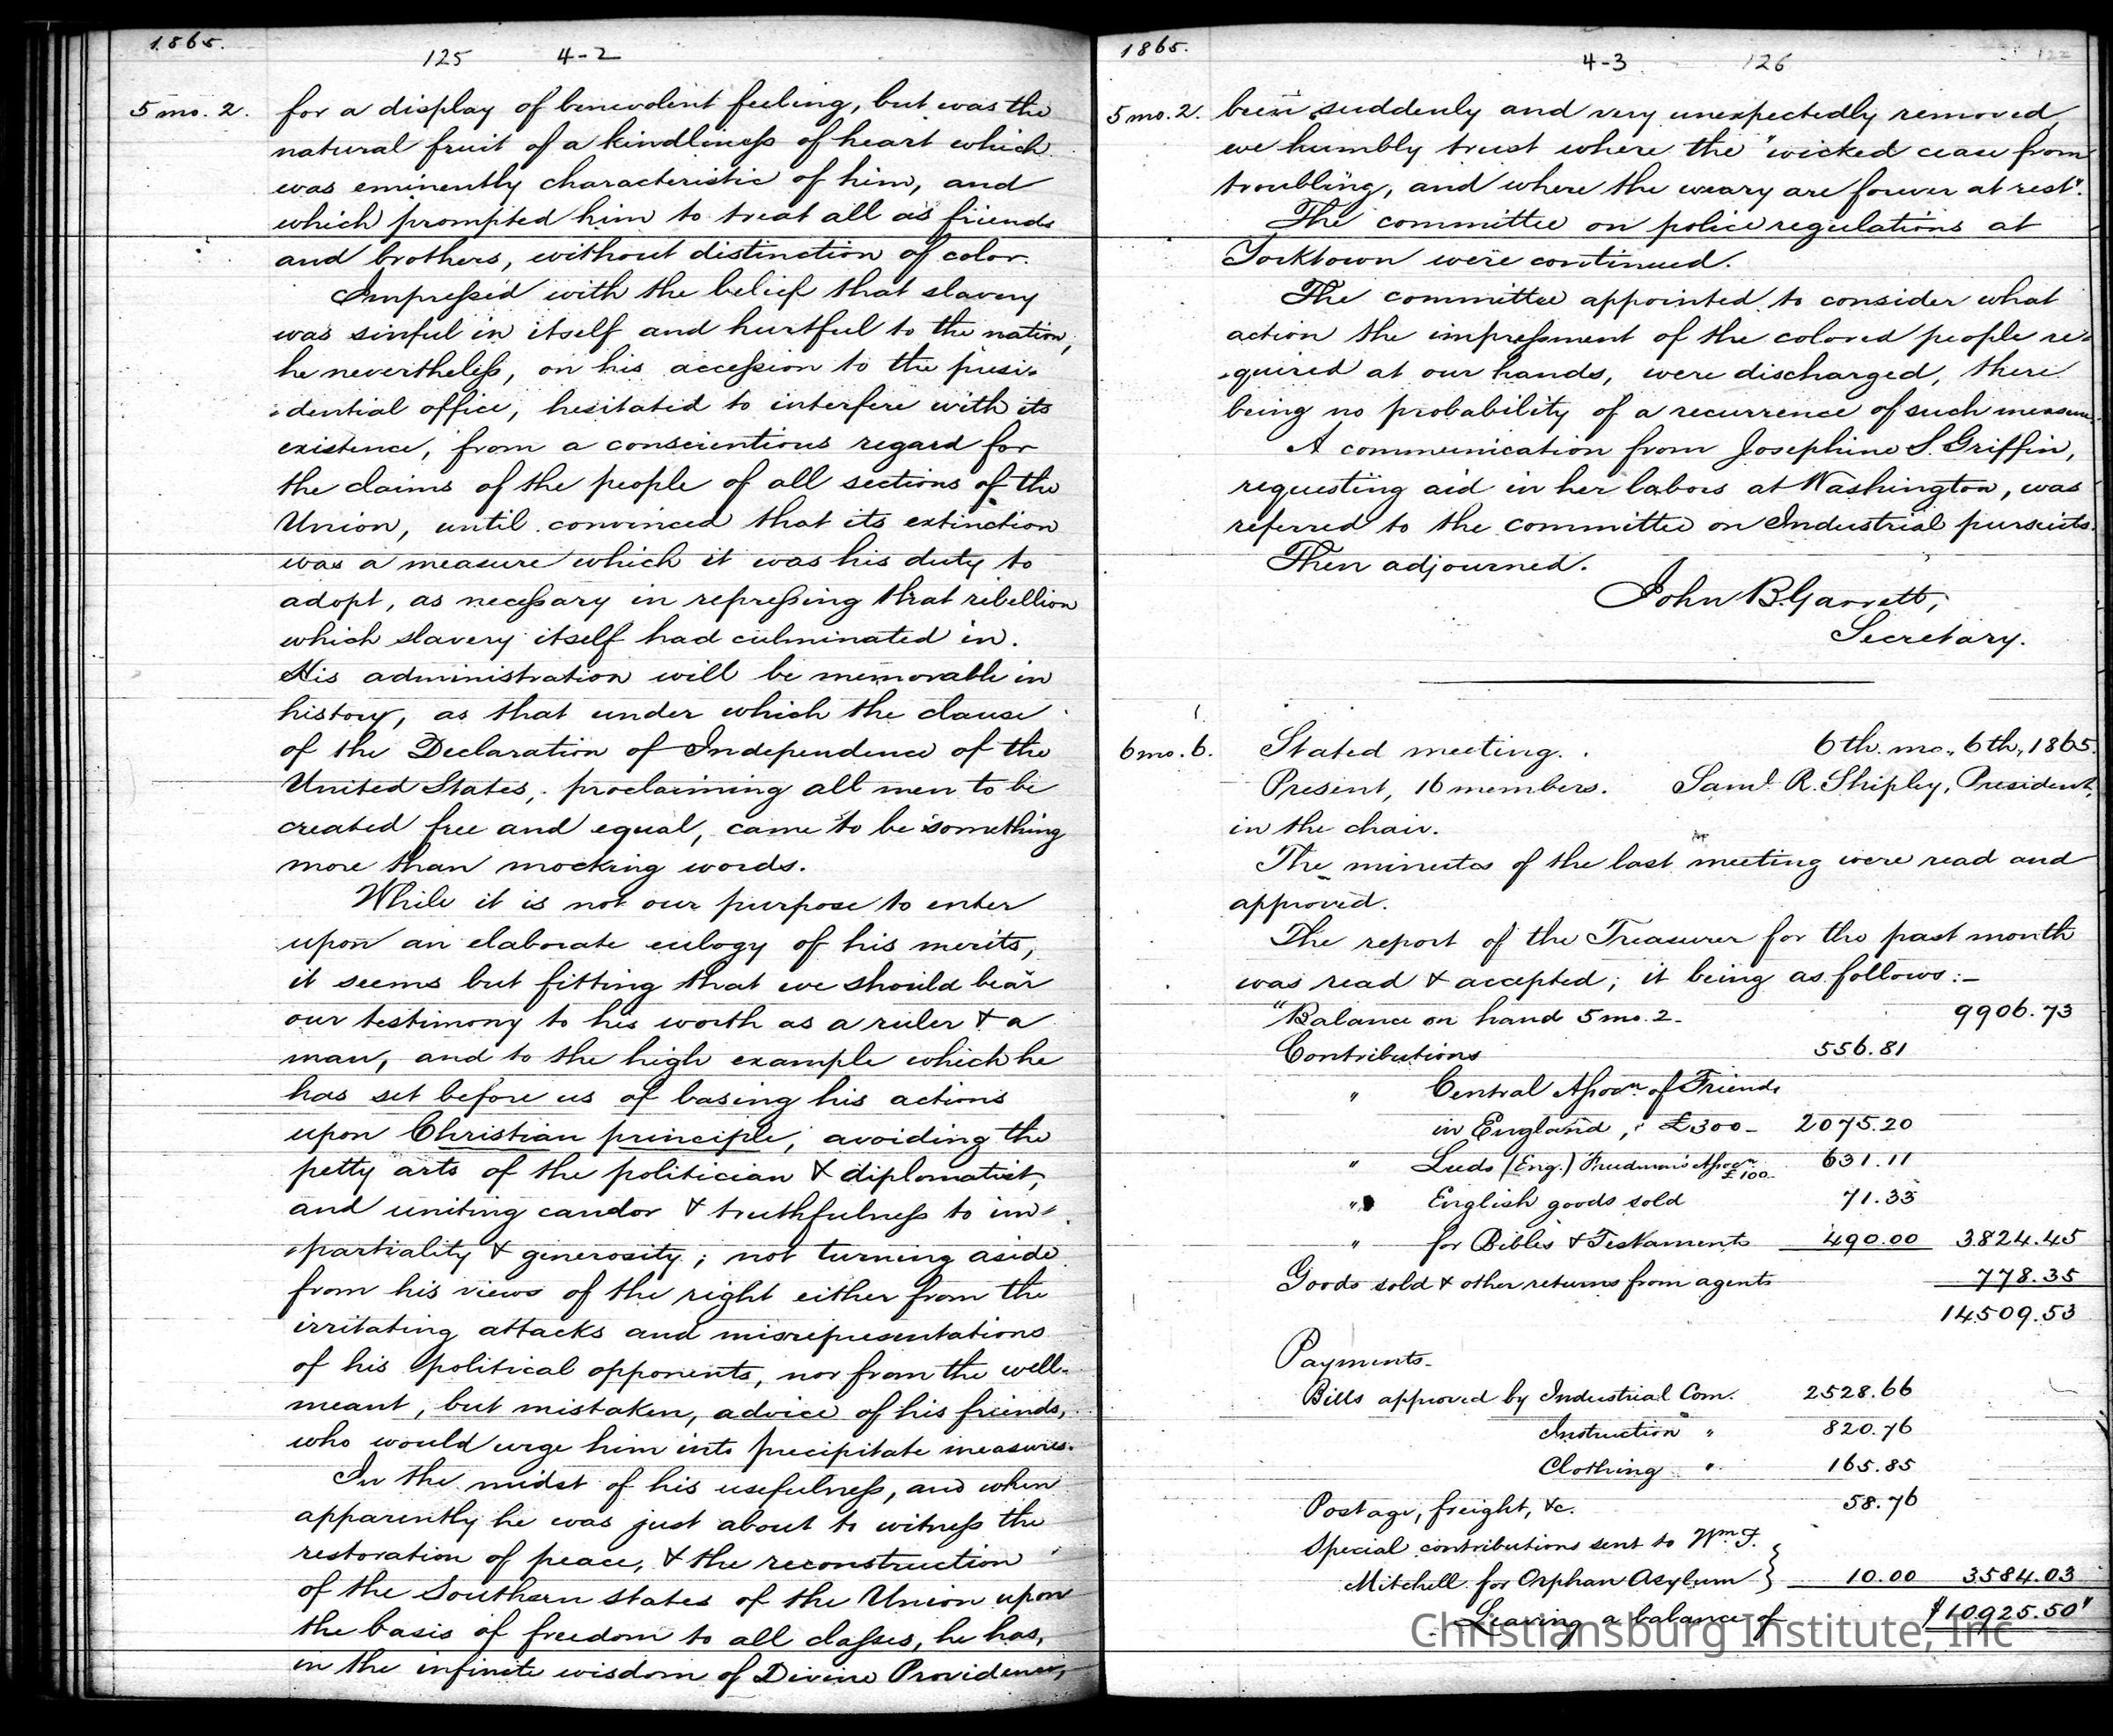 1865.
125 4-2
5 mo. 2. for a display of benevolent feeling, but was the
natural fruit of a kindliness of heart which
was eminently characteristic of him, and
which prompted him to treat all as friends
and brothers, without distinction of color.
Impressed with the belief that slavery
was sinful in itself and hurtful to the nation,
he nevertheless, on his accession to the presi-
-dential office, hesitated to interfere with its
existence, from a conscientious regard for
the claims of the people of all sections of the
Union, until convinced that its extinction
was a measure which it was his duty to
adopt, as necessary in repressing that rebellion
which slavery itself had culminated in.
His administration will be memorable in
history, as that under which the clause
of the Declaration of Independence of the
United States, proclaiming all men to be
created free and equal, came to be something
more than mocking words.
While it is not our purpose to enter
upon an elaborate eulogy of his merits,
it seems but fitting that we should bear
our testimony to his worth as a ruler & a
man, and to the high example which he
has set before us of basing his actions
upon Christian principle, avoiding the
petty arts of the politician & diplomatist,
and uniting candor & truthfulness to im-
-partiality & generosity; not turning aside
from his views of the right either from the
irritating attacks and misrepresentations
of his political opponents, nor from the well-
meant, but mistaken, advice of his friends,
who would urge him into precipitate measures.
In the midst of his usefulness, and when
apparently he was just about to witness the
restoration of peace, & the reconstruction
of the Southern states of the Union upon
the basis of freedom to all classes, he has,
in the infinite wisdom of Divine Providence,
1865.
4-3 126 122
5 mo. 2. been suddenly and very unexpectedly removed,
we humbly trust where the "wicked cease from
troubling, and where the weary are forever at rest".
The committee on police regulations at
Yorktown were continued.
The committee appointed to consider what
action the impressment of the colored people re-
-quired at our hands, were discharged, there
being no probability of a recurrence of such measure.
A communication from Josephine S. Griffin,
requesting aid in her labors at Washington, was
referred to the committee on Industrial pursuits.
Then adjourned.
John B. Garrett,
Secretary.
6 mo. 6. Stated meeting. 6th. mo., 6th, 1865.
Present, 16 members. Saml. R. Shipley, President,
in the chair.
The minutes of the last meeting were read and
approved.
The report of the Treasurer for the past month
was read & accepted; it being as follows:-
"Balance on hand 5 mo. 2- 9906.73
Contributions 556.81
" Central Assocn. of Friends
in England, £300- 2075.20
" Leeds (Eng.) Freedmen's Assocn. £100- 631.11
" English goods sold 71.33
" for Bibles & Testaments 490.00 3824.45
Goods sold & other returns from agents 778.35
14509.53
Payments-
Bills approved by Industrial Com. 2528.66
Instruction " 820.76
Clothing " 165.85
Postage, freight, &c. 58.76
Special contributions sent to Wm. F.
Mitchell for Orphan Asylum } 10.00 3584.03
Leaving a balance of $10925.50"
Christiansburg Institute, Inc